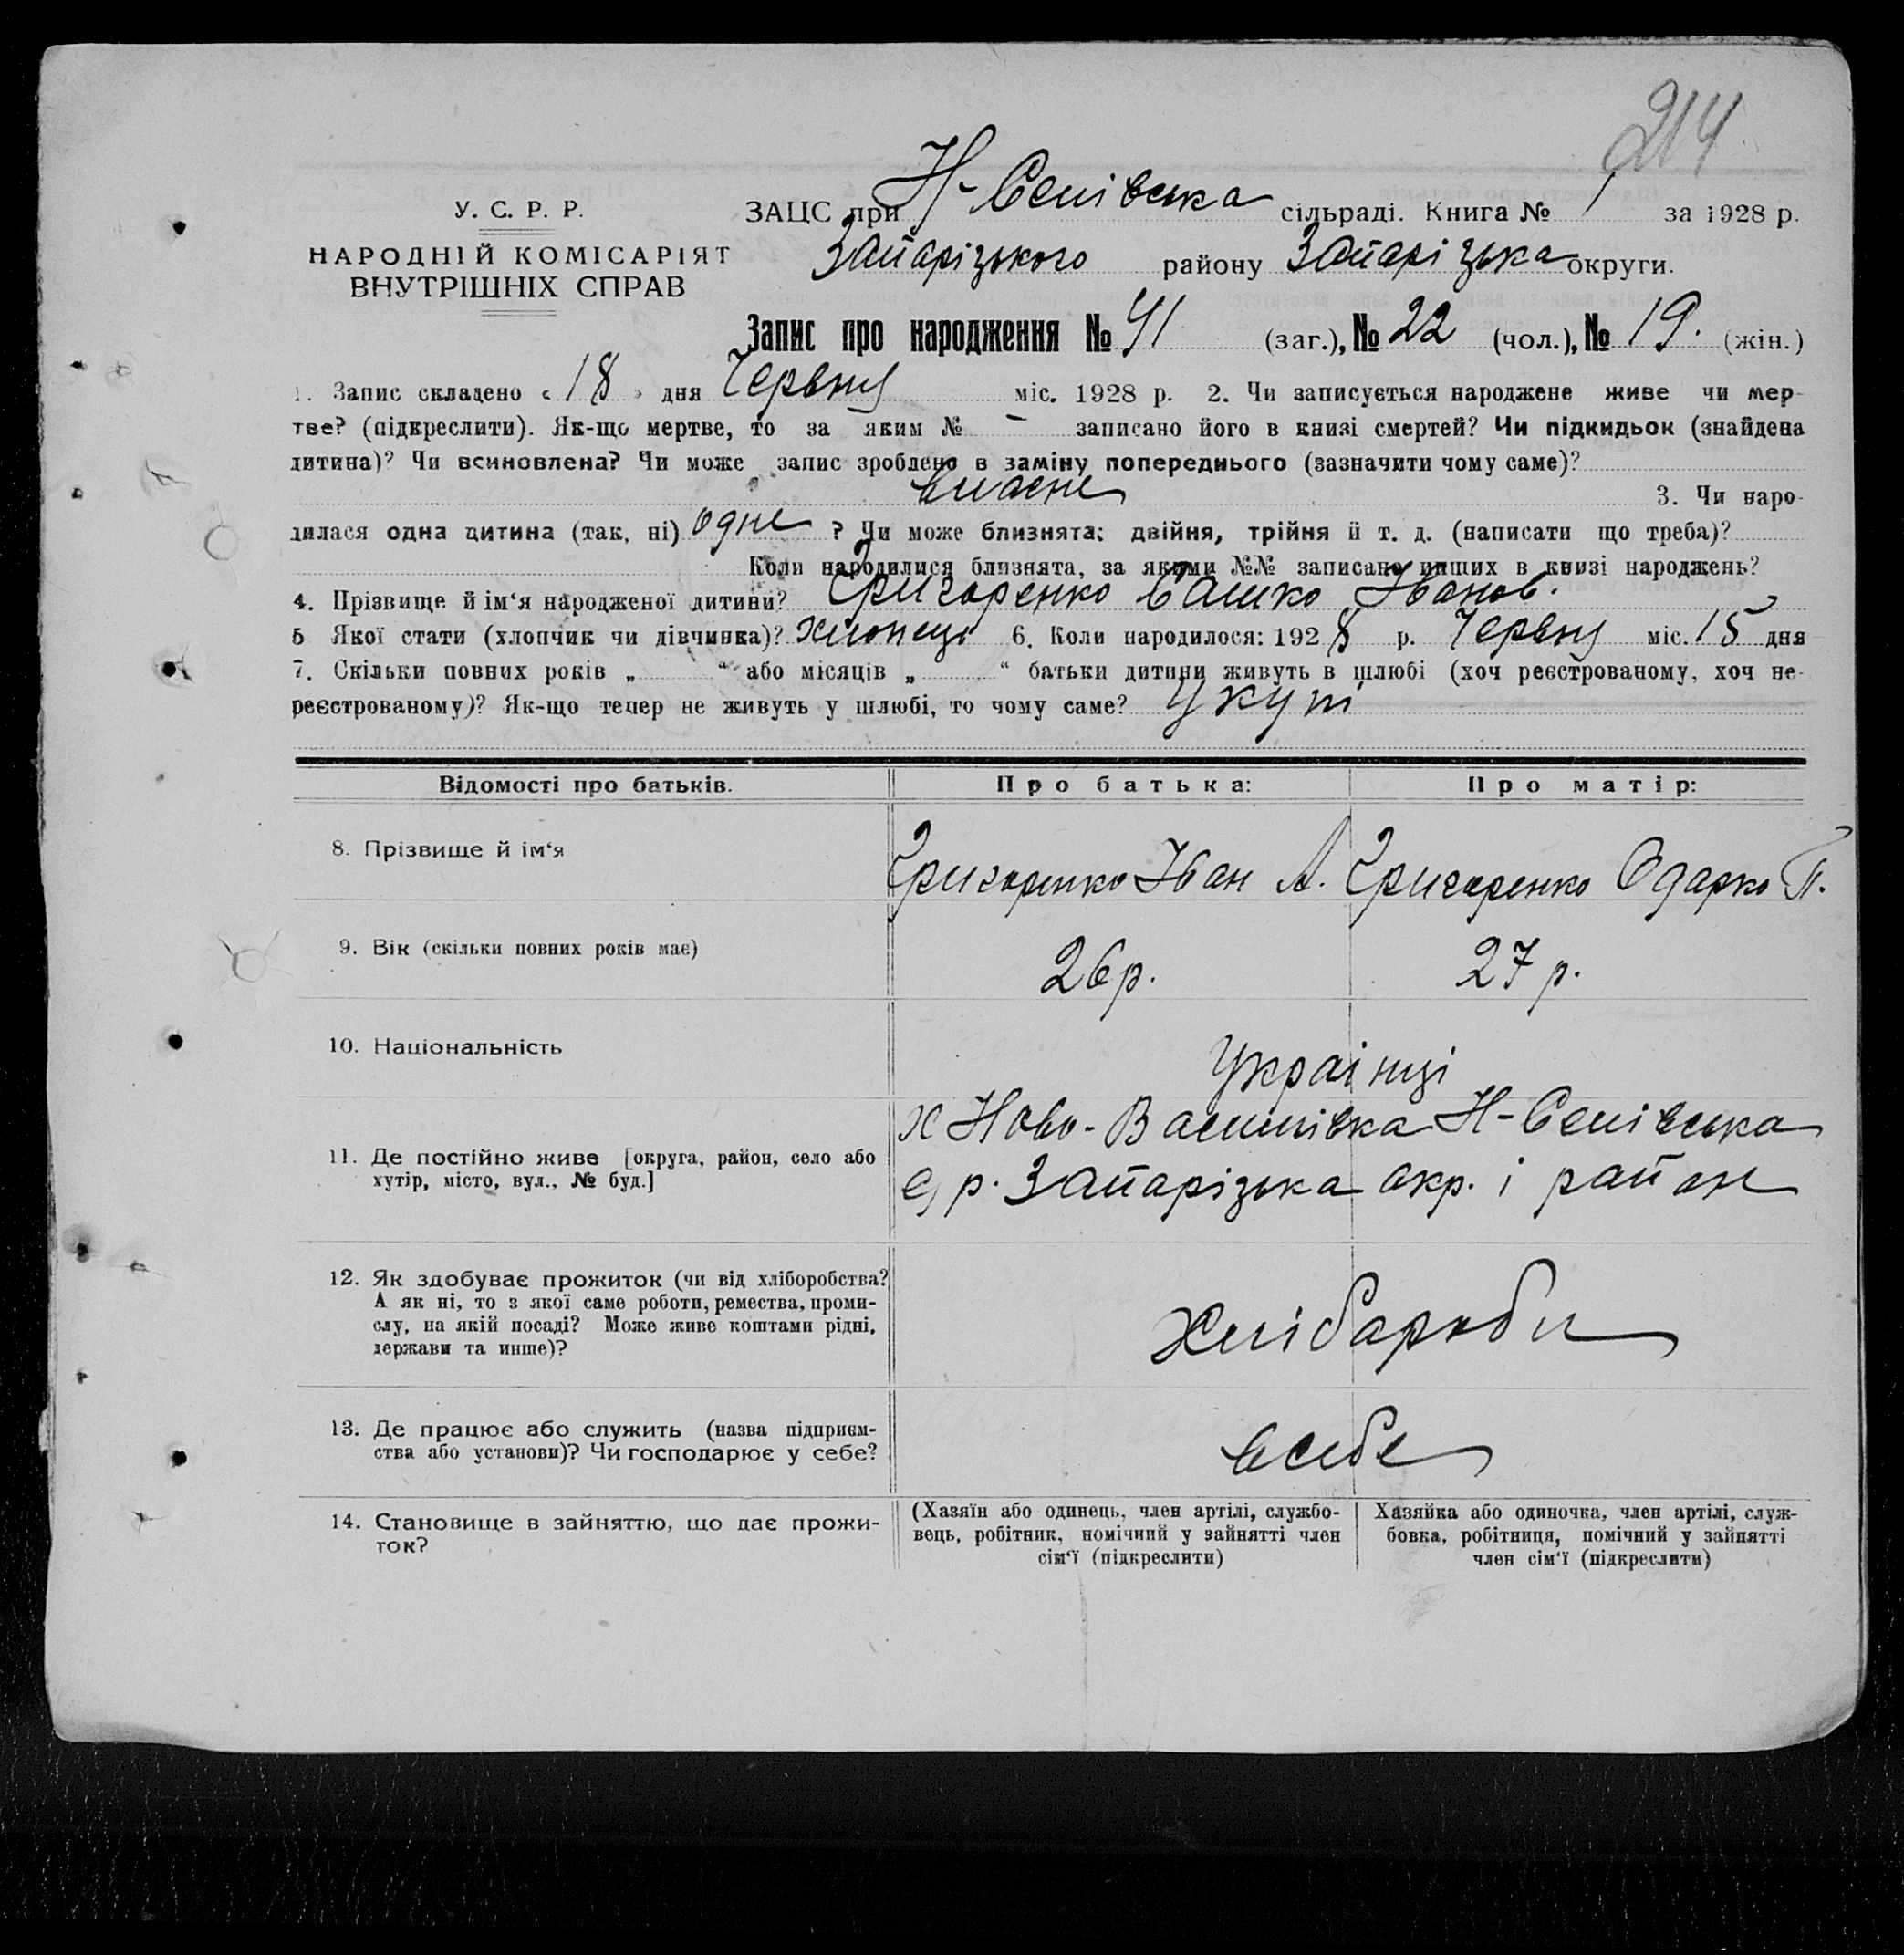 214
У. С. Р. Р.
НАРОДНІЙ КОМІСАРІЯТ
ВНУТРІШНІХ СПРАВ
ЗАЦС при Н- сільраді. Книга № 1 за 1928 р.
Запарізького району Запарізька округи.
Запис про народження № 41 (заг.), № 22 (чол.), № 19. (жін.)
1. Запис складено « 18 » дня Червня міс. 1928 р. 2. Чи записується народжене живе чи мер-
тве? (підкреслити). Як-що мертве, то за яким № – записано його в книзі смертей? Чи підкидьок (знайдена
дитина)? Чи всиновлена? Чи може запис зроблено в заміну попереднього (зазначити чому саме)?
власне 3. Чи наро-
дилася одна дитина (так, ні) одне ? Чи може близнята: двійня, трійня й т. д. (написати що треба)?
Коли народилися близнята, за якими №№ записано инших в книзі народжень?
4. Прізвище й ім‘я народженої дитини? Григоренко Сашко Іванов.
5 Якої стати (хлопчик чи дівчинка)? хлопець 6. Коли народилося: 1928 р. Червня міс. 15 дня
7. Скільки повних років „ “ або місяців „ “ батьки дитини живуть в шлюбі (хоч реєстрованому, хоч не-
реєстрованому)? Як-що тепер не живуть у шлюбі, то чому саме? Укупі
Відомості про батьків. Про батька: Про матір:
8. Прізвище й ім‘я Григоренко Іван А. Григоренко Одарко П.
9. Вік (скільки повних років має) 26 р. 27 р.
10. Національність Українці
11. Де постійно живе [округа, район, село або
хутір, місто, вул., № буд.]
х Ново-Василівка Н-
с/р. Запарізька акр. і район
12. Як здобуває прожиток (чи від хліборобства?
А як ні, то з якої саме роботи, ремества, проми-
слу, на якій посаді? Може живе коштами рідні,
держави та инше)?
Хлібароби
13. Де працює або служить (назва підприєм-
ства або установи)? Чи господарює у себе?
всебе
14. Становище в зайняттю, що дає прожи-
ток?
(Хазяїн або одинець, член артілі, службо-
вець, робітник, помічний у зайнятті член
сім‘ї (підкреслити)
Хазяйка або одиночка, член артілі, служ-
бовка, робітниця, помічний у зайнятті
член сім‘ї (підкреслити)